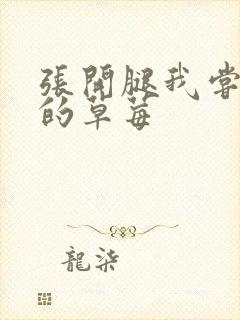 張開腿我嘗
的草莓
龍柒